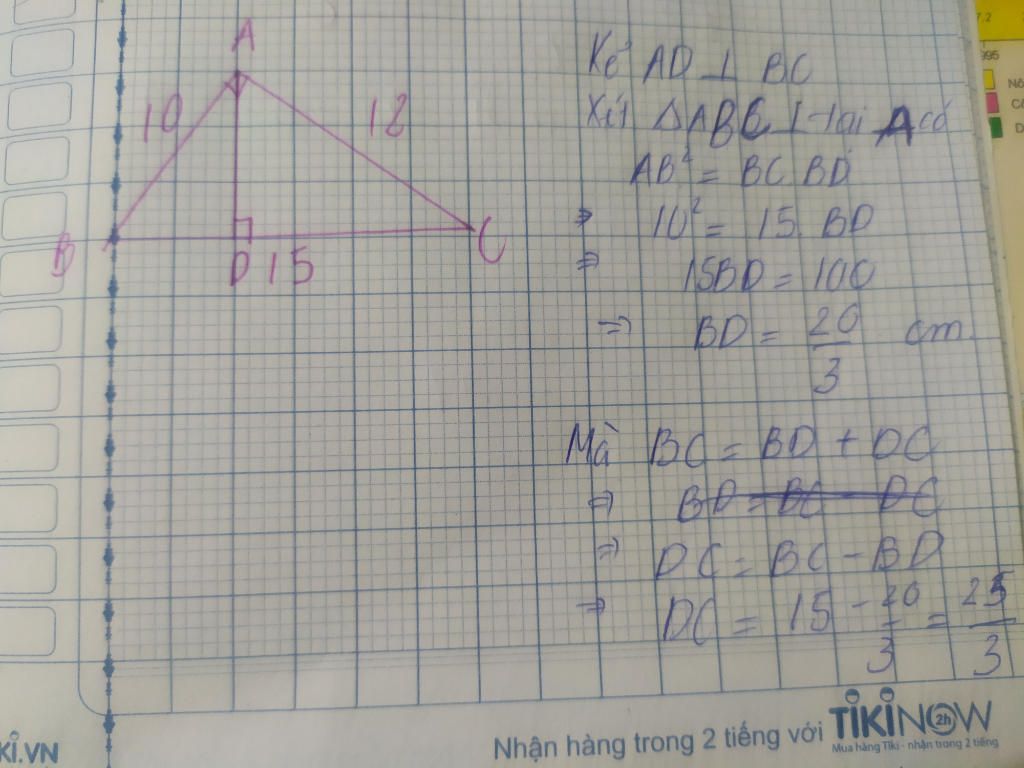 A
10
12
B
D
15
C
Kẻ AD ⊥ BC
Xét ΔABC ⊥ tại A có
AB² = BC. BD
⇒ 10² = 15. BD
⇒ 15BD = 100
⇒ BD = 20/3 cm.
Mà BC = BD + DC
⇒ BD = BC - DC
⇒ DC = BC - BD
⇒ DC = 15 - 20/3 = 25/3
KI.VN
Nhận hàng trong 2 tiếng với
TIKINOW
2h
Mua hàng Tiki - nhận trong 2 tiếng
7.2
995